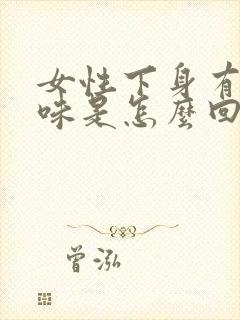 女性下身有
味是怎麼回
曾泓